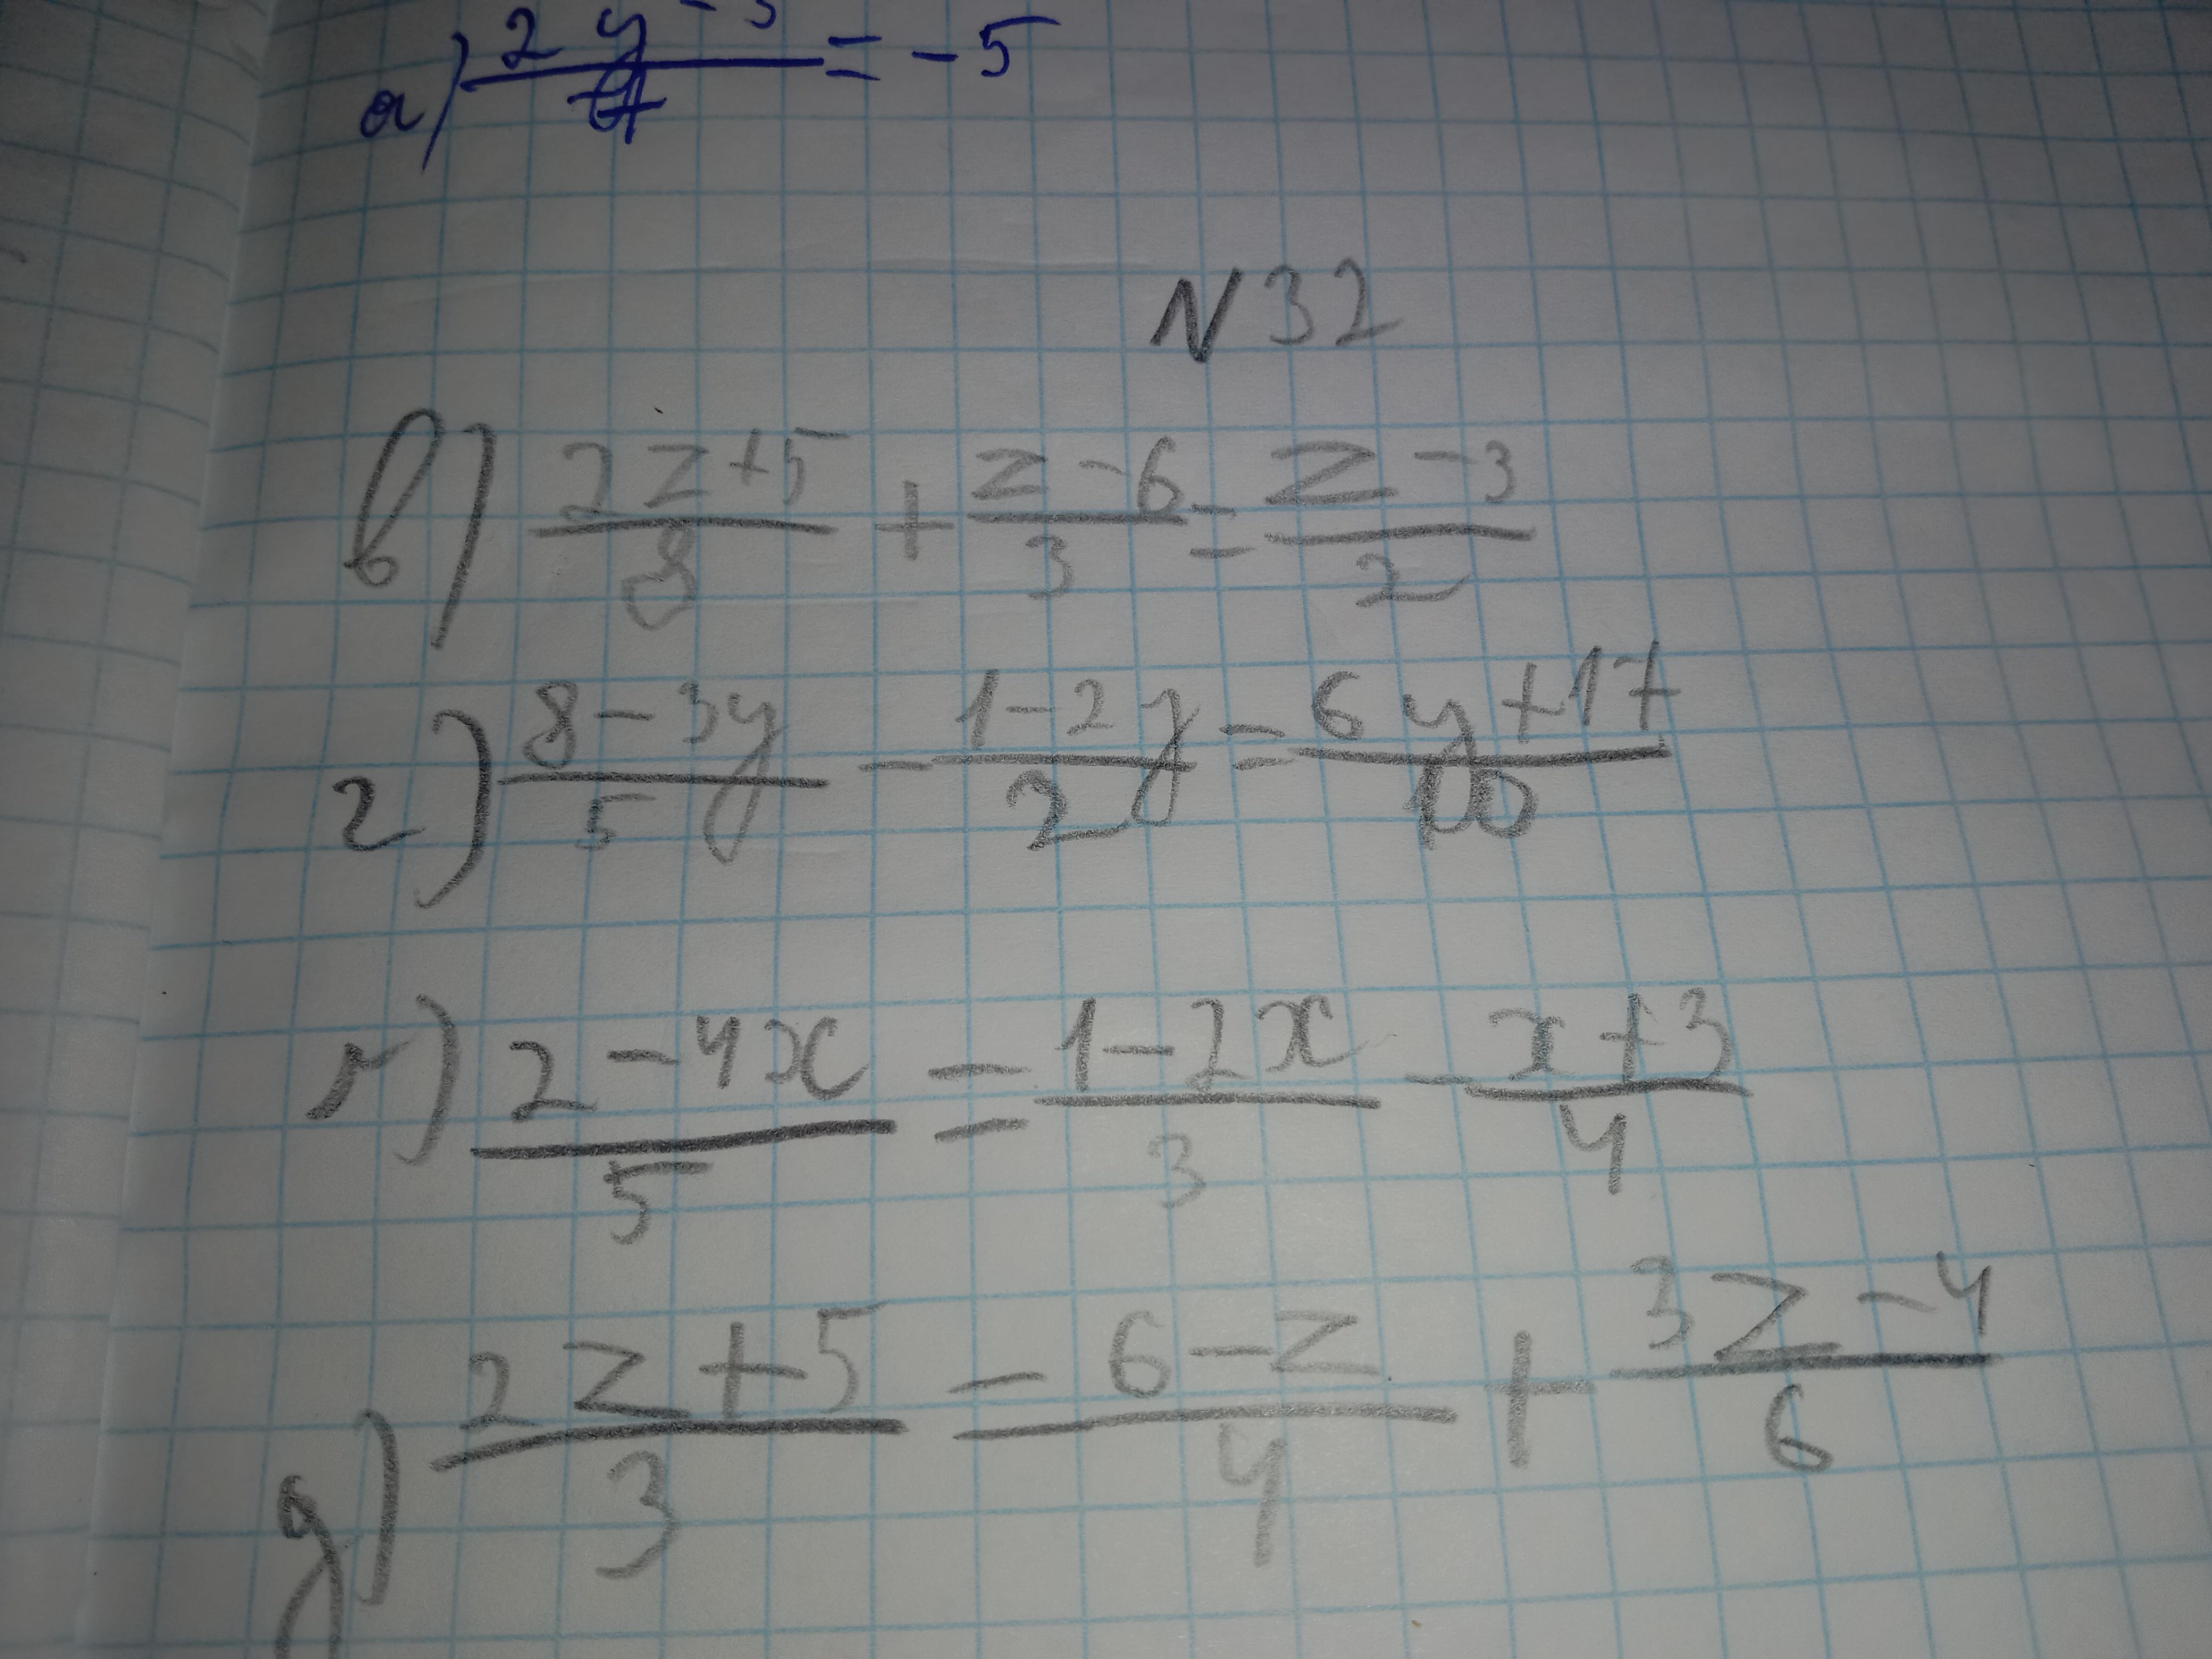 а) (2y - 5)/4 = -5
N 32
в) (2z+5)/8 + (z-6)/3 = (z-3)/2
г) (8-3y)/5 - (1-2y)/2 = (6y+17)/10
г) (2-4x)/5 = (1-2x)/3 - (x+3)/4
д) (2z+5)/3 = (6-z)/4 + (3z-4)/6